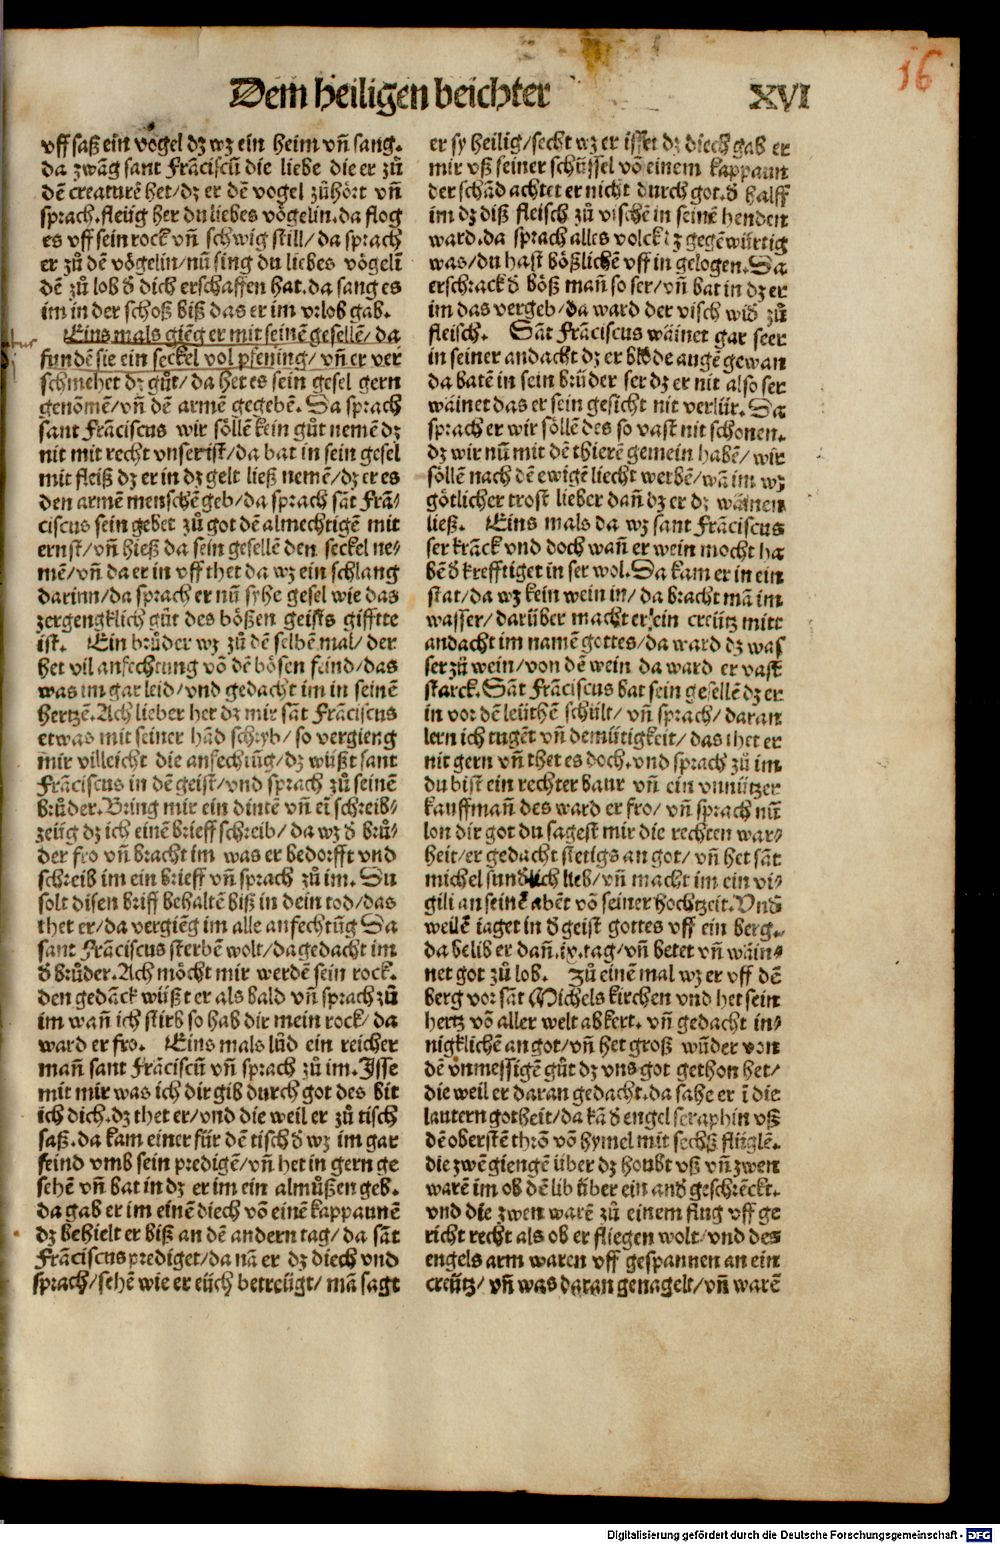 Dem heiligen beichter XVI
16
vff saß ein vogel dz wz ein heim vñ sang.
da zwãg sant Frãciscũ die liebe die er zů
dẽ creaturẽ het/dz er dẽ vogel zůhört vñ
sprach.fleüg her du liebes vögelin.da flog
es vff sein rock vñ schwig still/da sprach
er zů dẽ vögelin/nũ sing du liebes vögelĩ
dẽ zů lob ð dich erschaffen hat.da sang es
im in der schoß biß das er im vrlob gab.
Eins mals gieng er mit seinẽ gesellẽ/da
fundẽ sie ein seckel vol pfening/vñ er ver
schmehet dz gůt/da het es sein gesel gern
genõmẽ/vñ dẽ armẽ gegebẽ. Da sprach
sant Frãciscus wir söllẽ kein gůt nemẽ dz
nit mit recht vnser ist/da bat in sein gesel
mit fleiß dz er in dz gelt ließ nemẽ/dz er es
den armẽ menschẽ geb/da sprach sãt Frã/
ciscus sein gebet zů got dẽ almechtigẽ mit
ernst/vñ hieß da sein gesellẽ den seckel ne/
mẽ/vñ da er in vff thet da wz ein schlang
darinn/da sprach er nũ syhe gesel wie das
zergengklich gůt des bößen geists gifftte
ist. Ein brůder wz zů dẽ selbẽ mal/der
het vil anfechtung võ dẽ bösen feind/das
was im gar leid/vnd gedacht im in seinẽ
hertzẽ.Ach lieber her dz mir sãt Frãciscus
etwas mit seiner hãd schryb/so vergieng
mir villeicht die anfechtũg/dz wüßt sant
Frãciscus in dẽ geist/vnd sprach zů seinẽ
brůder.Bring mir ein dintẽ vñ eĩ schreib/
zeüg dz ich einẽ brieff schreib/da wz ð brů/
der fro vñ bracht im was er bedorfft vnd
schreib im ein brieff vñ sprach zů im. Du
solt disen briff behaltẽ biß in dein tod/das
thet er/da vergieng im alle anfechtũg Da
sant Frãciscus sterbẽ wolt/da gedacht im
ð brůder.Ach möcht mir werdẽ sein rock.
den gedãck wüßt er als bald vñ sprach zů
im wañ ich stirb so hab dir mein rock/da
ward er fro. Eins mals lůd ein reicher
mañ sant Frãciscũ vñ sprach zů im.Isse
mit mir was ich dir gib durch got des bit
ich dich.dz thet er/vnd die weil er zů tisch
saß.da kam einer für dẽ tisch ð wz im gar
feind vmb sein predigẽ/vñ het in gern ge
sehẽ vñ bat in dz er im ein almůßen geb.
da gab er im einẽ diech võ einẽ kappaunẽ
dz behielt er biß an dẽ andern tag/da sãt
Frãciscus prediget/da nã er dz diech vnd
sprach/sehẽ wie er eüch betreügt/mã sagt
er sy heilig/secht wz er isset dz diech gab er
mir vß seiner schüssel võ einem kappaun
der schãd achtet er nicht durch got.ð halff
im dz diß fleisch zů vischẽ in seinẽ henden
ward.da sprach alles volck dz gegẽwürtig
was/du hast bößlichẽ vff in gelogen.Da
erschrack ð böß mañ so ser/vñ bat in dz er
im das vergeb/da ward der visch wið zů
fleisch. Sãt Frãciscus wäinet gar seer
in seiner andacht dz er blöde augẽ gewan
da batẽ in sein brüder ser dz er nit also ser
wäinet das er sein gesicht nit verlür. Da
sprach er wir söllẽ des so vast nit schonen.
dz wir nũ mit dẽ thierẽ gemein habẽ/wir
söllẽ nach dẽ ewigẽ liecht werbẽ/wã im wz
götlicher trost lieber dañ dz er dz wäinen
ließ. Eins mals da wz sant Frãciscus
ser krãck vnd doch wañ er wein mocht ha
bẽ ð krefftiget in ser wol.Da kam er in ein
stat/da wz kein wein in/da bracht mã im
wasser/darüber macht er ein creütz mitt
andacht im namẽ gottes/da ward dz was
ser zů wein/von dẽ wein da ward er vast
starck.Sãt Frãciscus bat sein gesellẽ dz er
in vor dẽ leüthẽ schült/vñ sprach/daran
lern ich tugẽt vñ demütigkeit/das thet er
nit gern vñ thet es doch.vnd sprach zů im
du bist ein rechter baur vñ ein vnnützer
kauffmañ des ward er fro/vñ sprach nũ
lon dir got du sagest mir die rechten war/
heit/er gedacht stetigs an got/vñ het sãt
michel sunðlich lieb/vñ macht im ein vi/
gili an seinẽ abẽt võ seiner hochtzeit.Vnð
weilẽ iaget in ð geist gottes vff ein berg.
da belib er dañ.ix.tag/vñ betet vñ wäin/
net got zů lob. Zů einẽ mal wz er vff dẽ
berg vor sãt Michels kirchen vnd het sein
hertz võ aller welt abkert.vñ gedacht in/
nigklichẽ an got/vñ het groß wũder von
dẽ vnmessigẽ gůt dz vns got gethon het/
die weil er daran gedacht.da sahe er ĩ die
lautern gotheit/da kã ð engel seraphin vß
dẽ oberstẽ thrõ võ hymel mit sechß flüglẽ.
die zwẽ giengẽ über dz houbt vß vñ zwen
warẽ im ob dẽ lib über ein anð geschrẽckt.
vnd die zwen warẽ zů einem flug vff ge
richt recht als ob er fliegen wolt/vnd des
engels arm waren vff gespannen an ein
creütz/vñ was daran genagelt/vñ warẽ
Digitalisierung gefördert durch die Deutsche Forschungsgemeinschaft - DFG